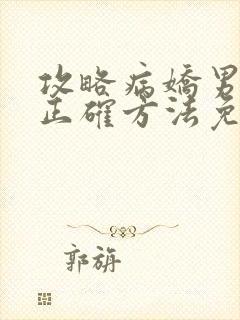 攻略病嬌男
正確方法免
郭旃